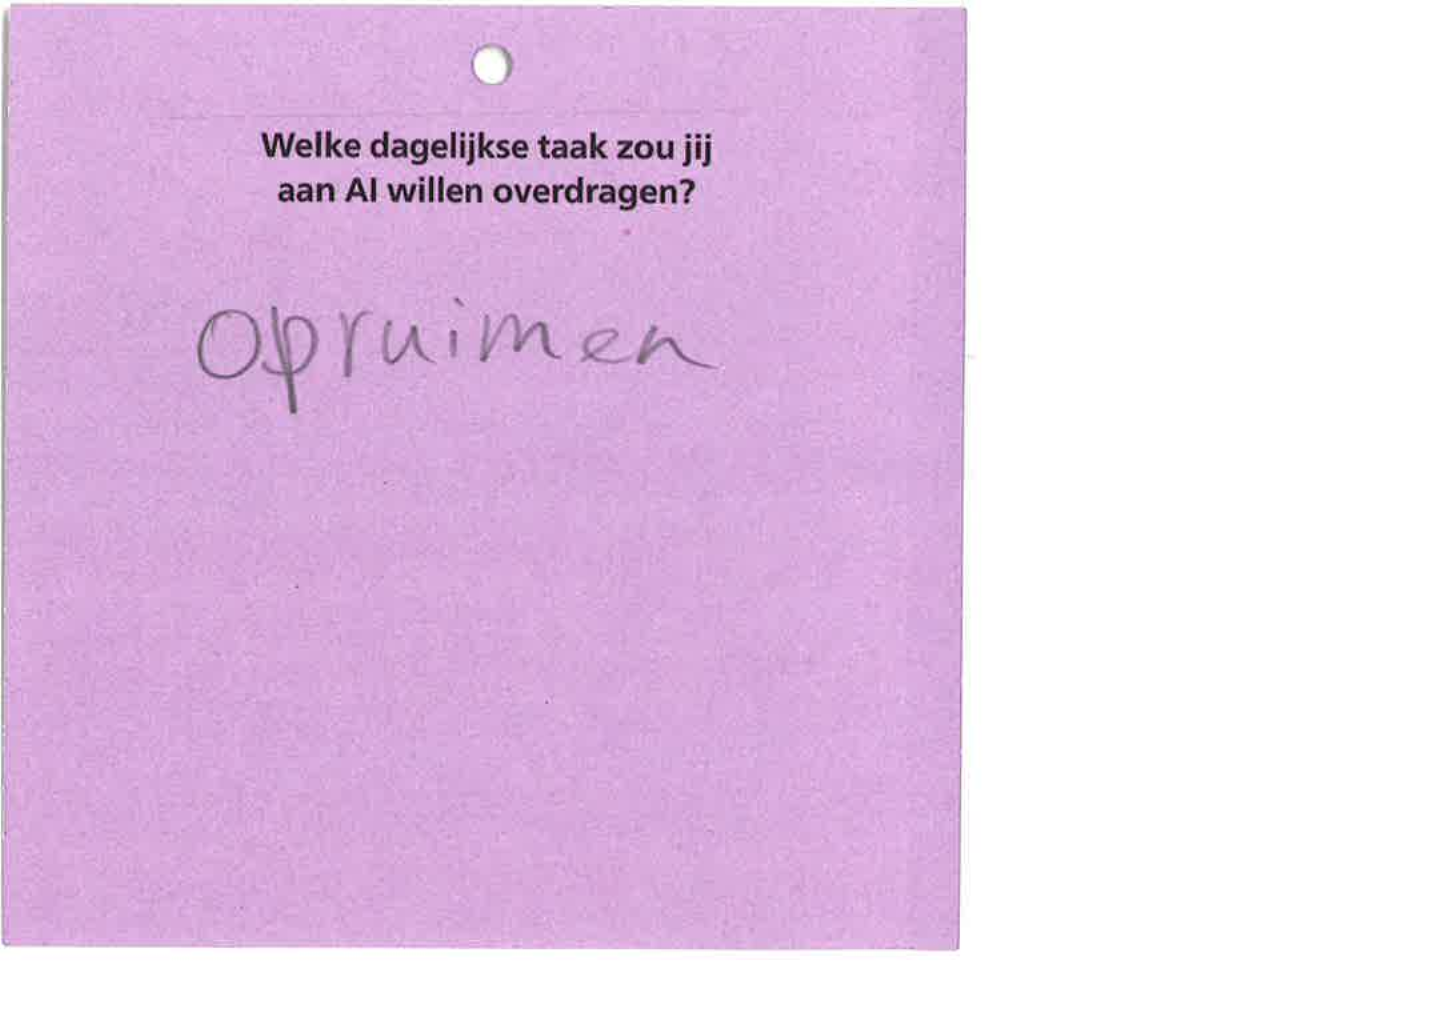 Welke dagelijkse taak zou jij
aan AI willen overdragen?
opruimen